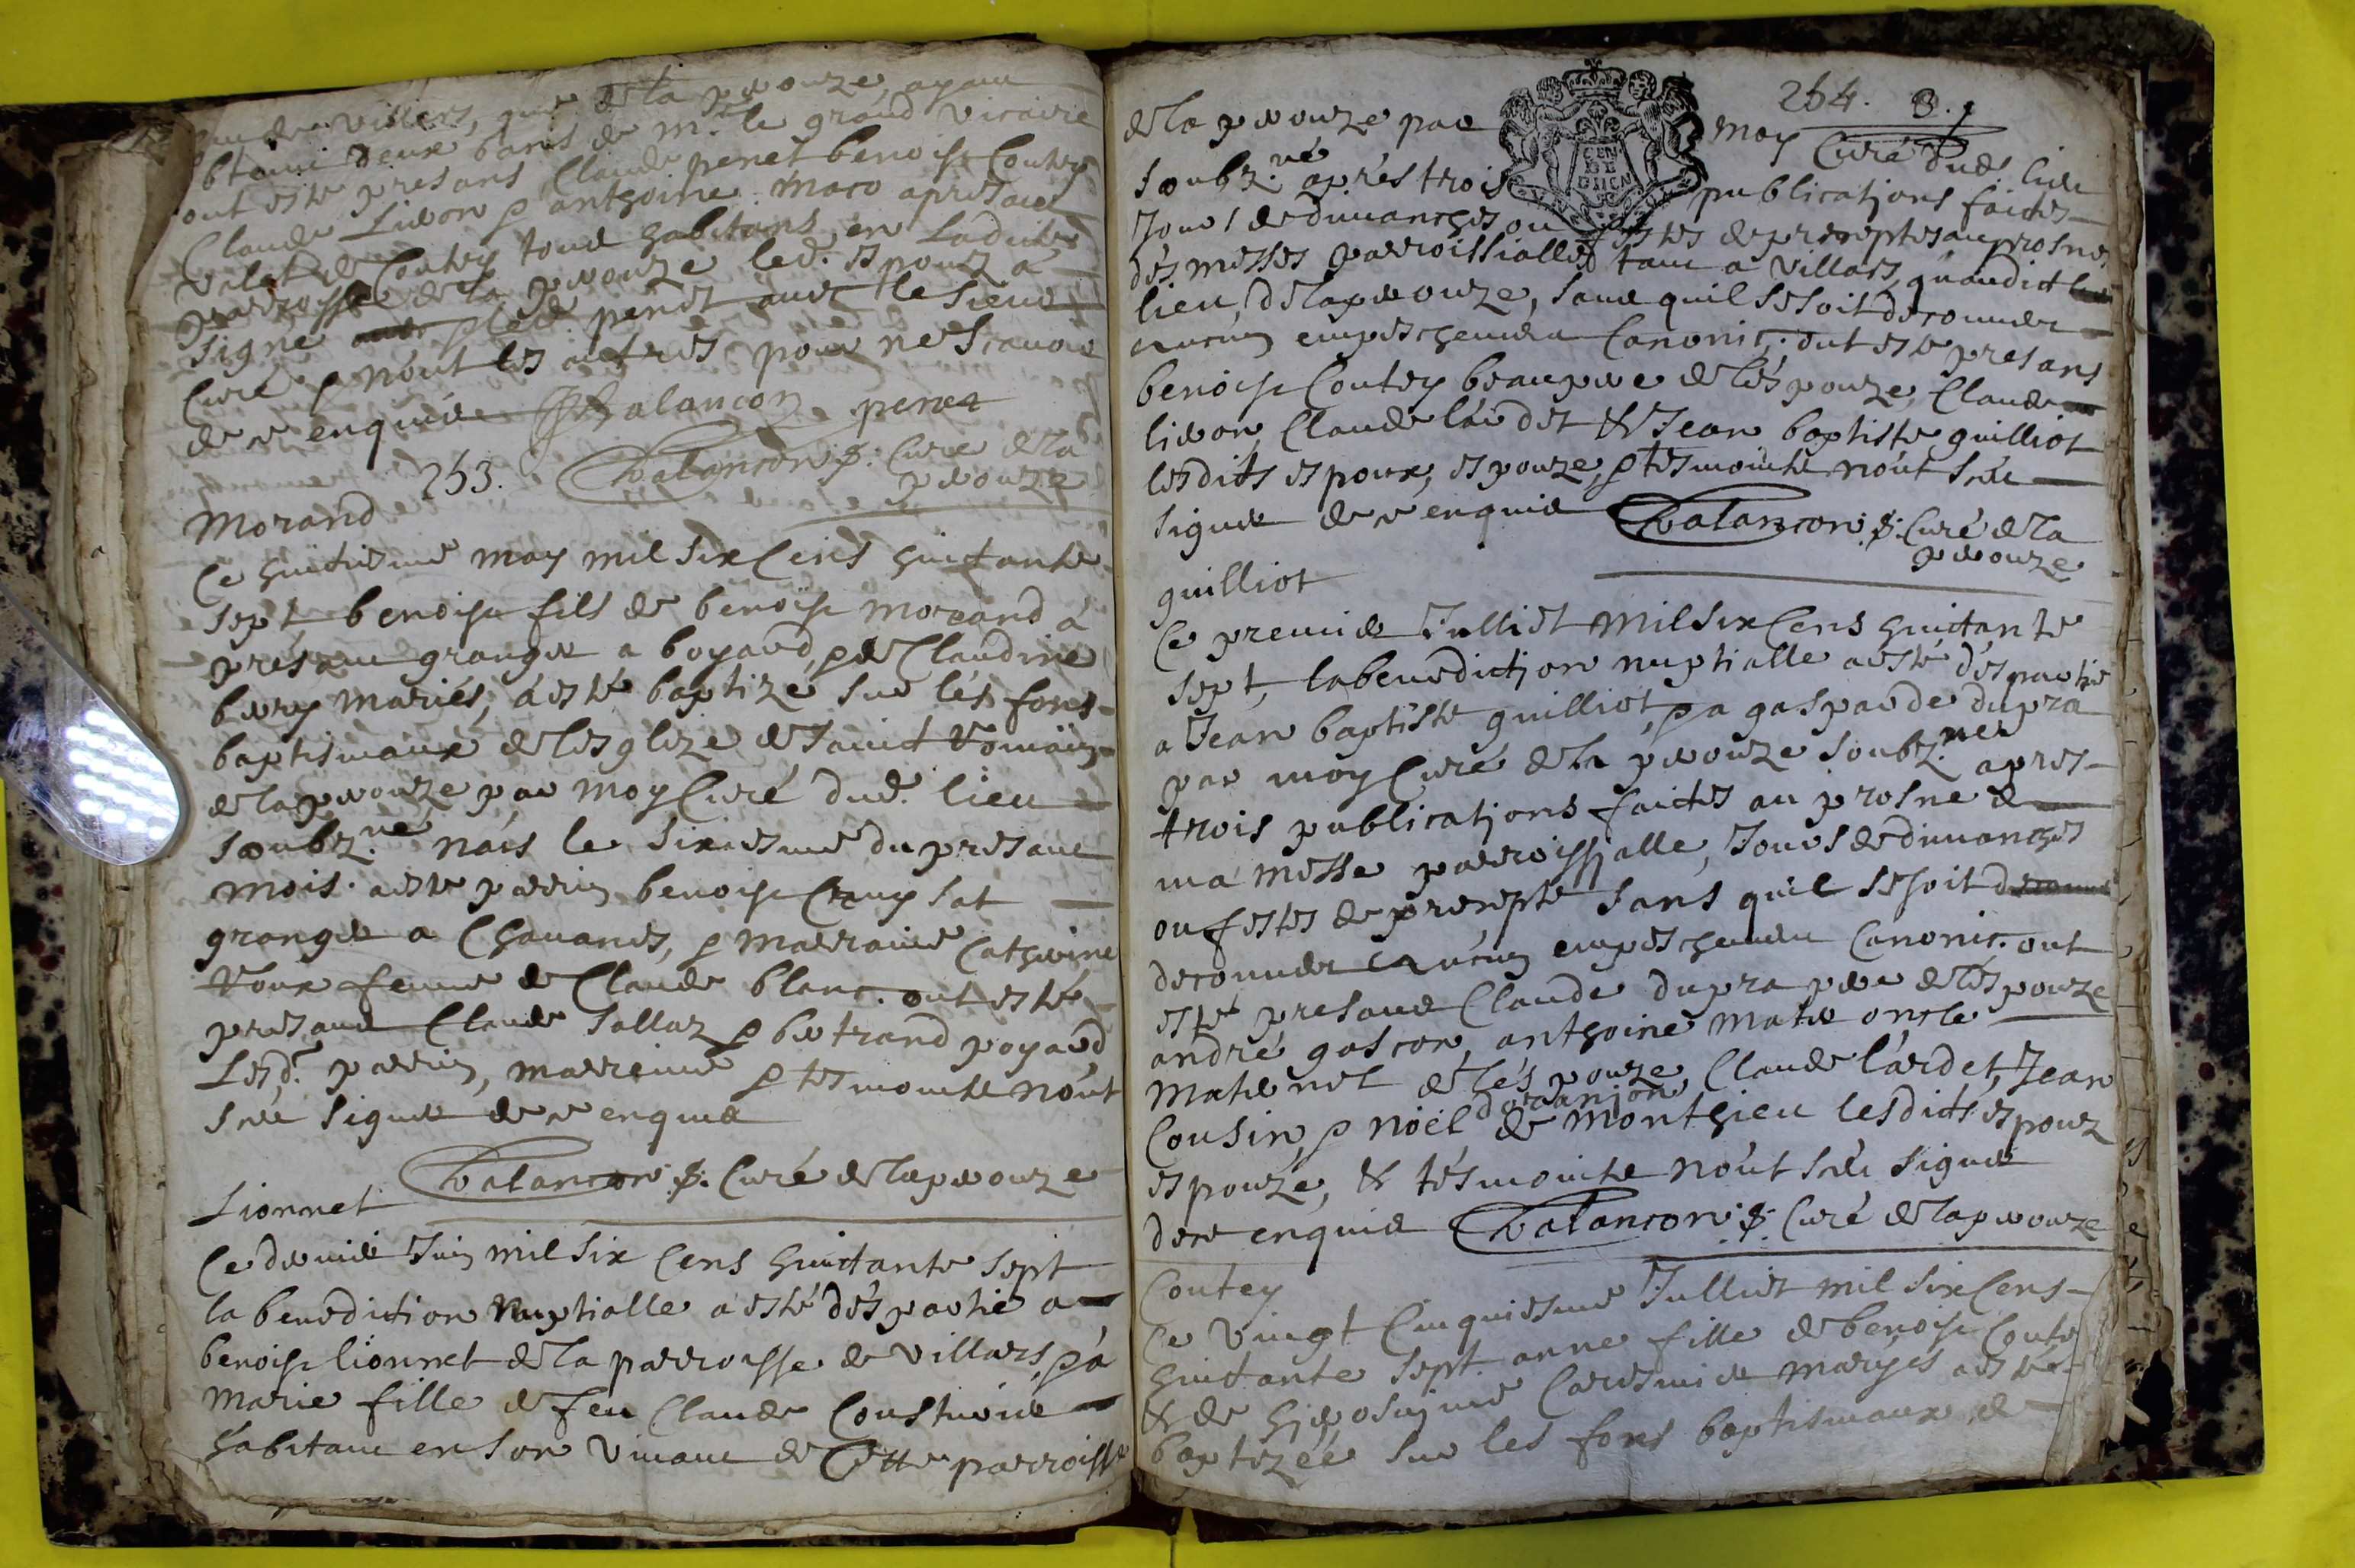 de villiers, de la perouze, ayant
obtenu deux bans de mr. le grand vicaire
ont esté presans Claude penet benoist Coutey
Claude Lieon & anthoine
valet de Coutey tous habitans en Laditte
parroisse de la perouze led. espouz a
signé & led. penet avec le sieur
Curé & n'ont les autres pour ne scavoir
de ce enquis Balancon penet
263. Balancon p. Curé de la
perouze
Morand
Ce huitiesme may mil six Cens huictante
sept benoist fils de benoist morand à
présant granger a boyard, & de Claudine
bery mariés, a esté baptizé sur lés fons
baptismaux de l'esglize de sainct Romain
de la perouze par moy Curé dud. lieu
soubz.né náis le sixiesme du presant
mois. a esté parrin benoist
granger a Chavanes, & marraine Catherine
Roux femme de Claude blanc. ont esté
presans Claude sallaz & bertrand poyard
Lesd. parrin, marreine & tesmoints n'ont
sceu signer de ce enquis
Balancon p. Curé de la perouze
Lionnet
Ce dernier Juin mil six Cens huictante sept
la benediction Nuptialle a esté désparti a
benoist lionnet de la parroisse de villars, & à
Marie fille de feu Claude
habitant en son vivant de Cette parroisse
264. 3.
de la perouze par moy Curé dud. lieu
GEN
DE
soubz.né aprés trois publications faictes
Jours de dimanches ou festes de preceptes au prosne
dés messes parroissialles tant a villars, qu'audict
lieu, de la perouze, sans quil se soit decouvert
aucun empeschement Canonic. ont esté presans
benoist Coutey beaupere de l'espouze, Claude
lieon Claude lárdet & Jean baptiste guilliot
lesdits espoux, espouze, & tesmoints n'ont sceu
signer de ce enquis Balancon p. Curé de la
perouze
guilliot
Ce premier Julliet mil six Cens huictante
sept, la benediction nuptialle a esté déspartie
a Jean baptiste guilliot, & a gasparde dupra
par moy Curé de la perouze soubz.né apres
trois publications faictes au prosne de
ma messe parroissialle, Jours de dimanches
ou festes de precepte sans quil se soit
decouvert aucun empeschement Canonic. ont
esté presans Claude dupra pere de l'espouze
andré gascon, anthoine mate oncle
maternel de l'espouze Claude l'árdet, Jean
Cousin, & noël de monthieu lesdicts espouz
espouze, & tésmoints n'ont sceu signer
de ce enquis Balancon p. Curé de la perouze
Coutey
Ce vingt Cinquiesme Julliet mil six Cens
huictante sept anne fille de benoist Coutey
& de hierosnime maryés a esté
baptizée sur les fons baptismaux de